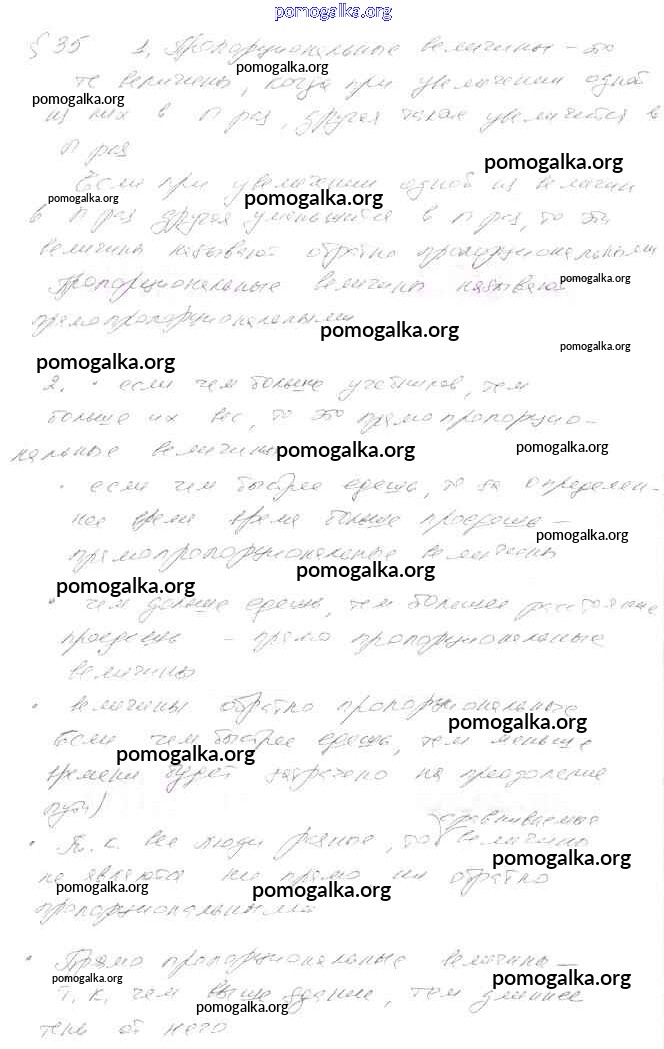 pomogalka.org
§ 35 1. Пропорциональные величины – это
pomogalka.org
те величины, когда при увеличении одной
pomogalka.org
из них в n раз, другая также увеличится в
n раз
pomogalka.org
Если при увеличении одной из величин
pomogalka.org
pomogalka.org
в n раз другая уменьшится в n раз, то эти
величины называют обратно пропорциональными
pomogalka.org
Пропорциональные величины называют
прямо пропорциональными
pomogalka.org
pomogalka.org
pomogalka.org
2. • если чем больше учебников, тем
больше их вес, то это прямо пропорцио-
нальные величины
pomogalka.org
pomogalka.org
• если чем быстрее едешь, то за определен-
ное время время больше проедешь –
pomogalka.org
прямо пропорциональные величины
pomogalka.org
pomogalka.org
• чем дольше едешь, тем большее расстояние
проедешь – прямо пропорциональные
величины
• величины обратно пропорциональные
pomogalka.org
Если чем быстрее едешь, тем меньше
pomogalka.org
времени будет затрачено на преодоление
пути)
сравниваемые
• Т. к. все люди разные, то величины
pomogalka.org
не являются ни прямо ни обратно
pomogalka.org
pomogalka.org
пропорциональными
• Прямо пропорциональные величины –
pomogalka.org
pomogalka.org
т. к. чем выше здание, тем длиннее
pomogalka.org
тень от него